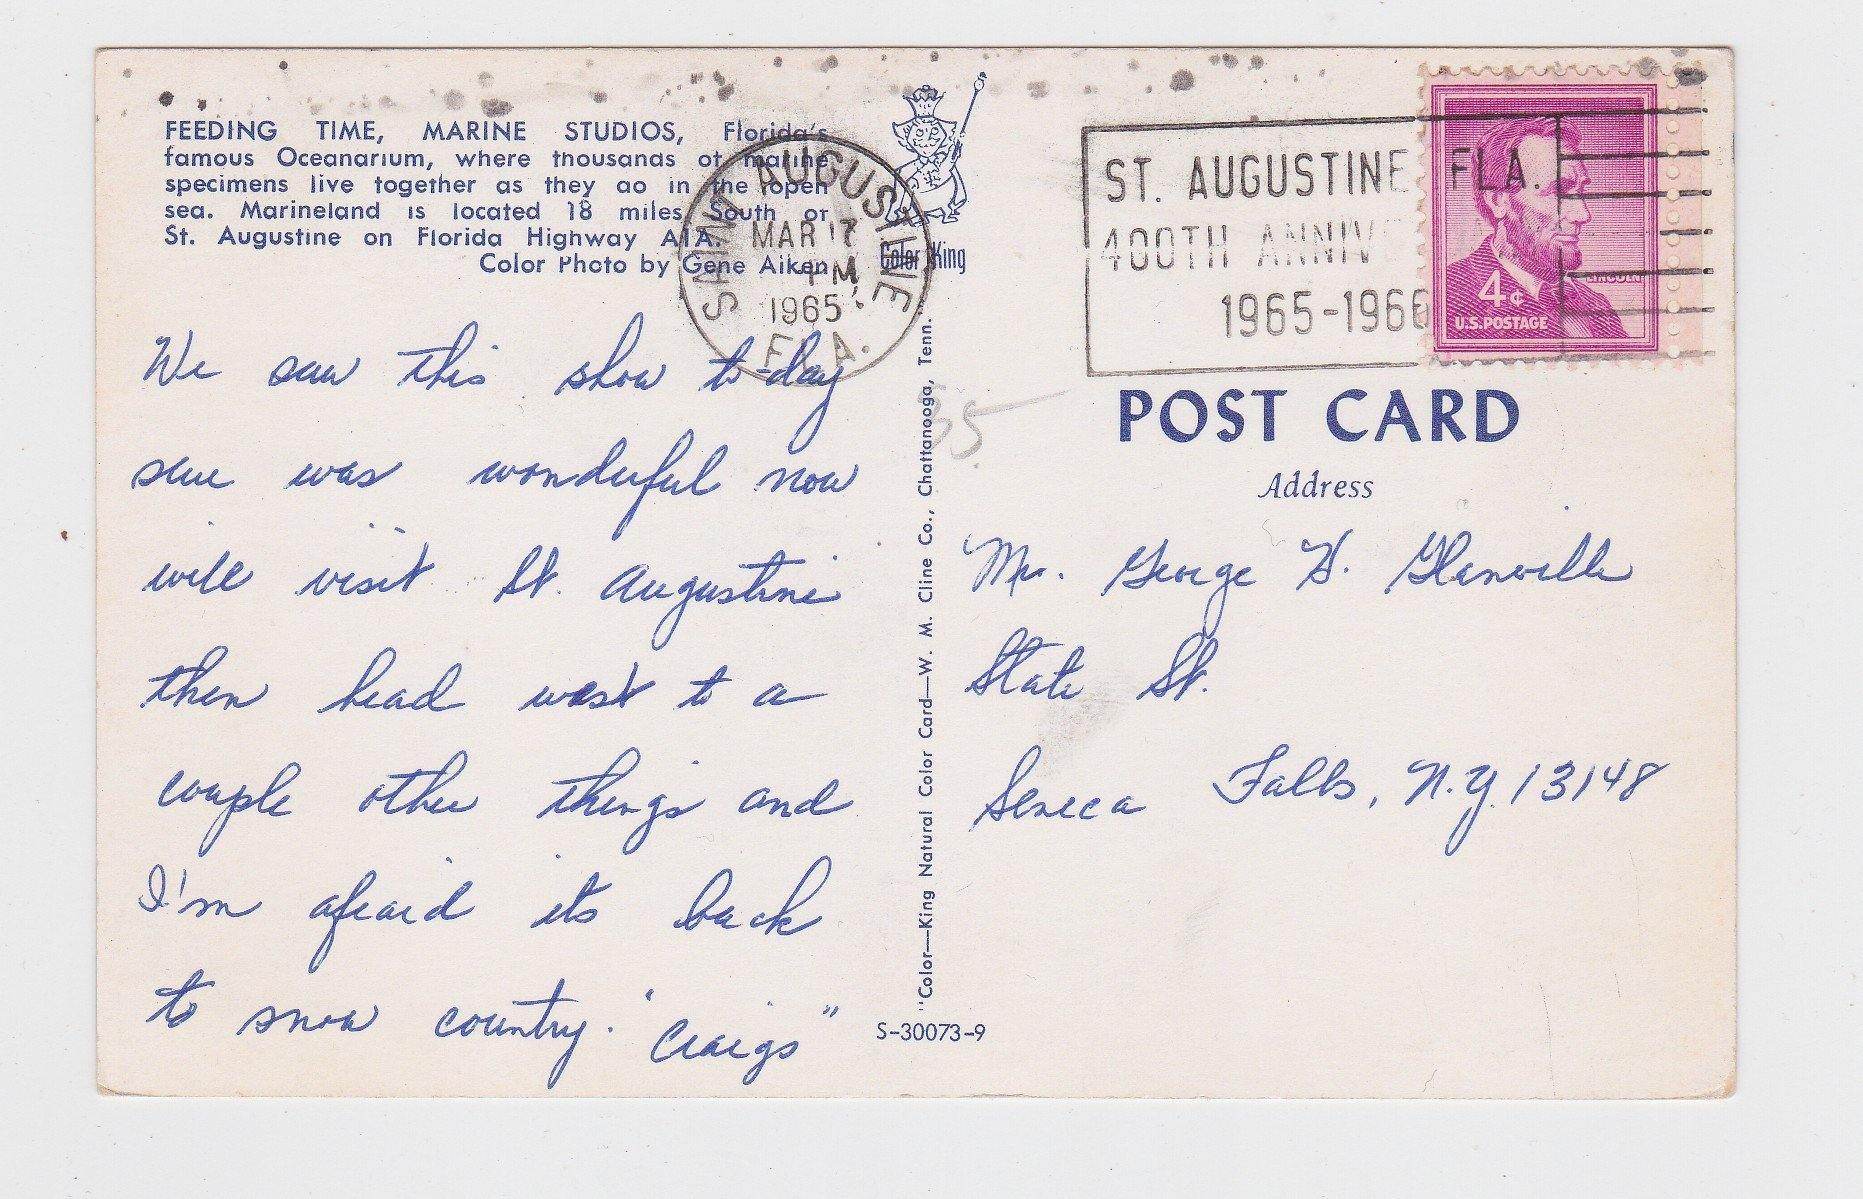 FEEDING TIME, MARINE STUDIOS, Florida's
famous Oceanarium, where thousands of marine
specimens live together as they do in the open
sea. Marineland is located 18 miles South of
St. Augustine on Florida Highway A1A.
Color Photo by Gene Aiken
Color King
SAINT AUGUSTINE
MAR 17
PM
1965
FLA.
ST. AUGUSTINE FLA.
400TH ANNIV
1965-1966
LINCOLN
4¢
U.S. POSTAGE
POST CARD
Address
We saw this show to-day
sure was wonderful now
will visit St. Augustine
then head west to a
couple other things and
I'm afraid its back
to snow country. "Craigs"
Mr. George H. Glanville
State St.
Seneca Falls, N.Y. 13148
"Color—King Natural Color Card—W. M. Cline Co., Chattanooga, Tenn."
S-30073-9